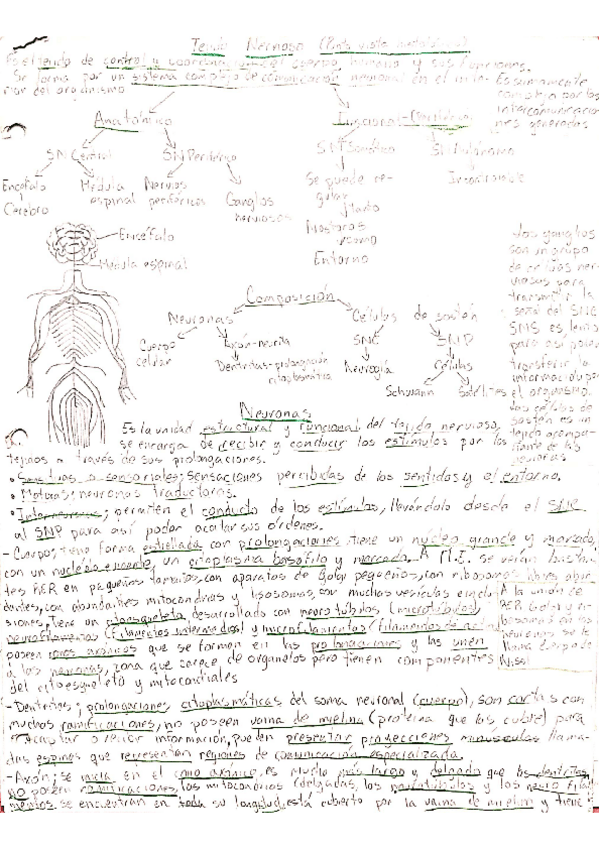 Tejido Nervioso (Punto vista anatómico)
Es el tejido de control y coordinación del cuerpo humano y sus funciones.
Se forma por un sistema complejo de comunicación neuronal en el inte-
rior del organismo
Es sumamente
complejo por las
intercomunicacio-
nes generadas
Anatómico
Funcional
SN Central
SN Periférico
SN Somático
SN Autónomo
Encéfalo
Cerebro
Médula
espinal
Nervios
periféricos
Ganglios
nerviosos
Se puede re-
gular
Entorno
Incontrolable
Encéfalo
Médula espinal
Los ganglios
son un grupo
de células ner-
viosas para
transmitir la
señal del SNC
para así poder
transferir la
información por
el organismo.
Las células de
sostén es un
Composición
Neuronas
Células de sostén
Cuerpo
celular
Axón-neurita
Dentritas-prolongación
citoplasmática
SNC
Neuroglia
SNP
Células
Schwann
Satélites
neuronas
Neuronas
Es la unidad estructural y funcional del tejido nervioso,
se encarga de recibir y conducir los estímulos por los
tejidos a través de sus prolongaciones.
• Sensitivas o sensoriales; sensaciones percibidas de los sentidos y el entorno.
• Motoras; neuronas traductoras.
• Interneuronas; permiten el conducto de los estímulos, llevándolo desde el
al SNP para así poder acatar sus órdenes.
- Cuerpo; tiene forma estrellada con prolongaciones, tiene un nucleo grande y morado,
con un nucleolo evidente, un citoplasma basófilo y morado. A M.E. se verán bastan-
tes RER en pequeños tamaños, con aparatos de Golgi pequeños, con ribosomas libres abun-
dantes, con abundantes mitocondrias y lisosomas, con muchas vesículas e inclu-
siones, tiene un citoesqueleto desarrollado con neurotúbulos (microtúbulos)
neurofilamentos (filamentos intermedios) y microfilamentos (filamentos de actina)
poseen conos axónicos que se forman en las prolongaciones y las unen
a las neuronas, zona que carece de organelos pero tienen componentes
del citoesqueleto y mitocondriales
A la unión de
RER, Golgi y ri-
bosomas en las
neuronas se le
llama cuerpo de
Nissl
- Dentritas; prolongaciones citoplasmáticas del soma neuronal (cuerpo), son cortas con
muchas ramificaciones, no poseen vaina de mielina (proteína que las cubre) para
captar o recibir información, pueden presentar proyecciones minúsculas llama-
das espinas que representan regiones de comunicación especializada.
- Axón; se inicia en el cono axónico, es mucho más largo y delgado que las dentritas,
no poseen ramificaciones, las mitocondrias delgadas, los neurotúbulos y los neurofila-
mentos se encuentran en toda su longitud, está cubierto por la vaina de mielina y tiene